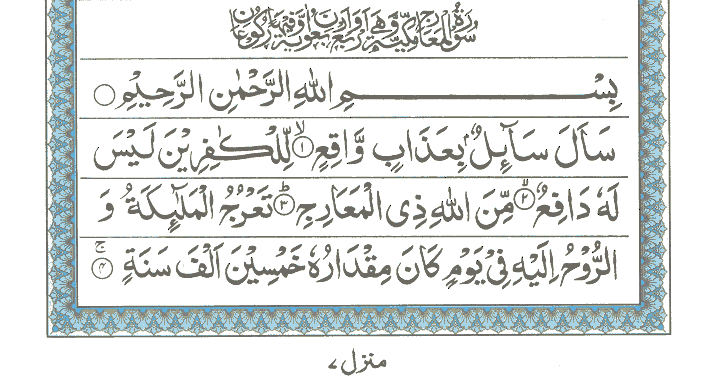 سورة المعارج مكية وهي اربع واربعون اية وفيها ركوعان
بِسْمِ اللهِ الرَّحْمٰنِ الرَّحِيْمِ ○
سَاَلَ سَآئِلٌۢ بِعَذَابٍ وَّاقِعٍ ۙ﴿۱﴾ لِّلْكٰفِرِيْنَ لَيْسَ
لَهٗ دَافِعٌ ۙ﴿۲﴾ مِّنَ اللهِ ذِى الْمَعَارِجِ ؕ﴿۳﴾ تَعْرُجُ الْمَلٰٓئِكَةُ وَ
الرُّوْحُ اِلَيْهِ فِىْ يَوْمٍ كَانَ مِقْدَارُهٗ خَمْسِيْنَ اَلْفَ سَنَةٍ ۚ﴿۴﴾
منزل ۷